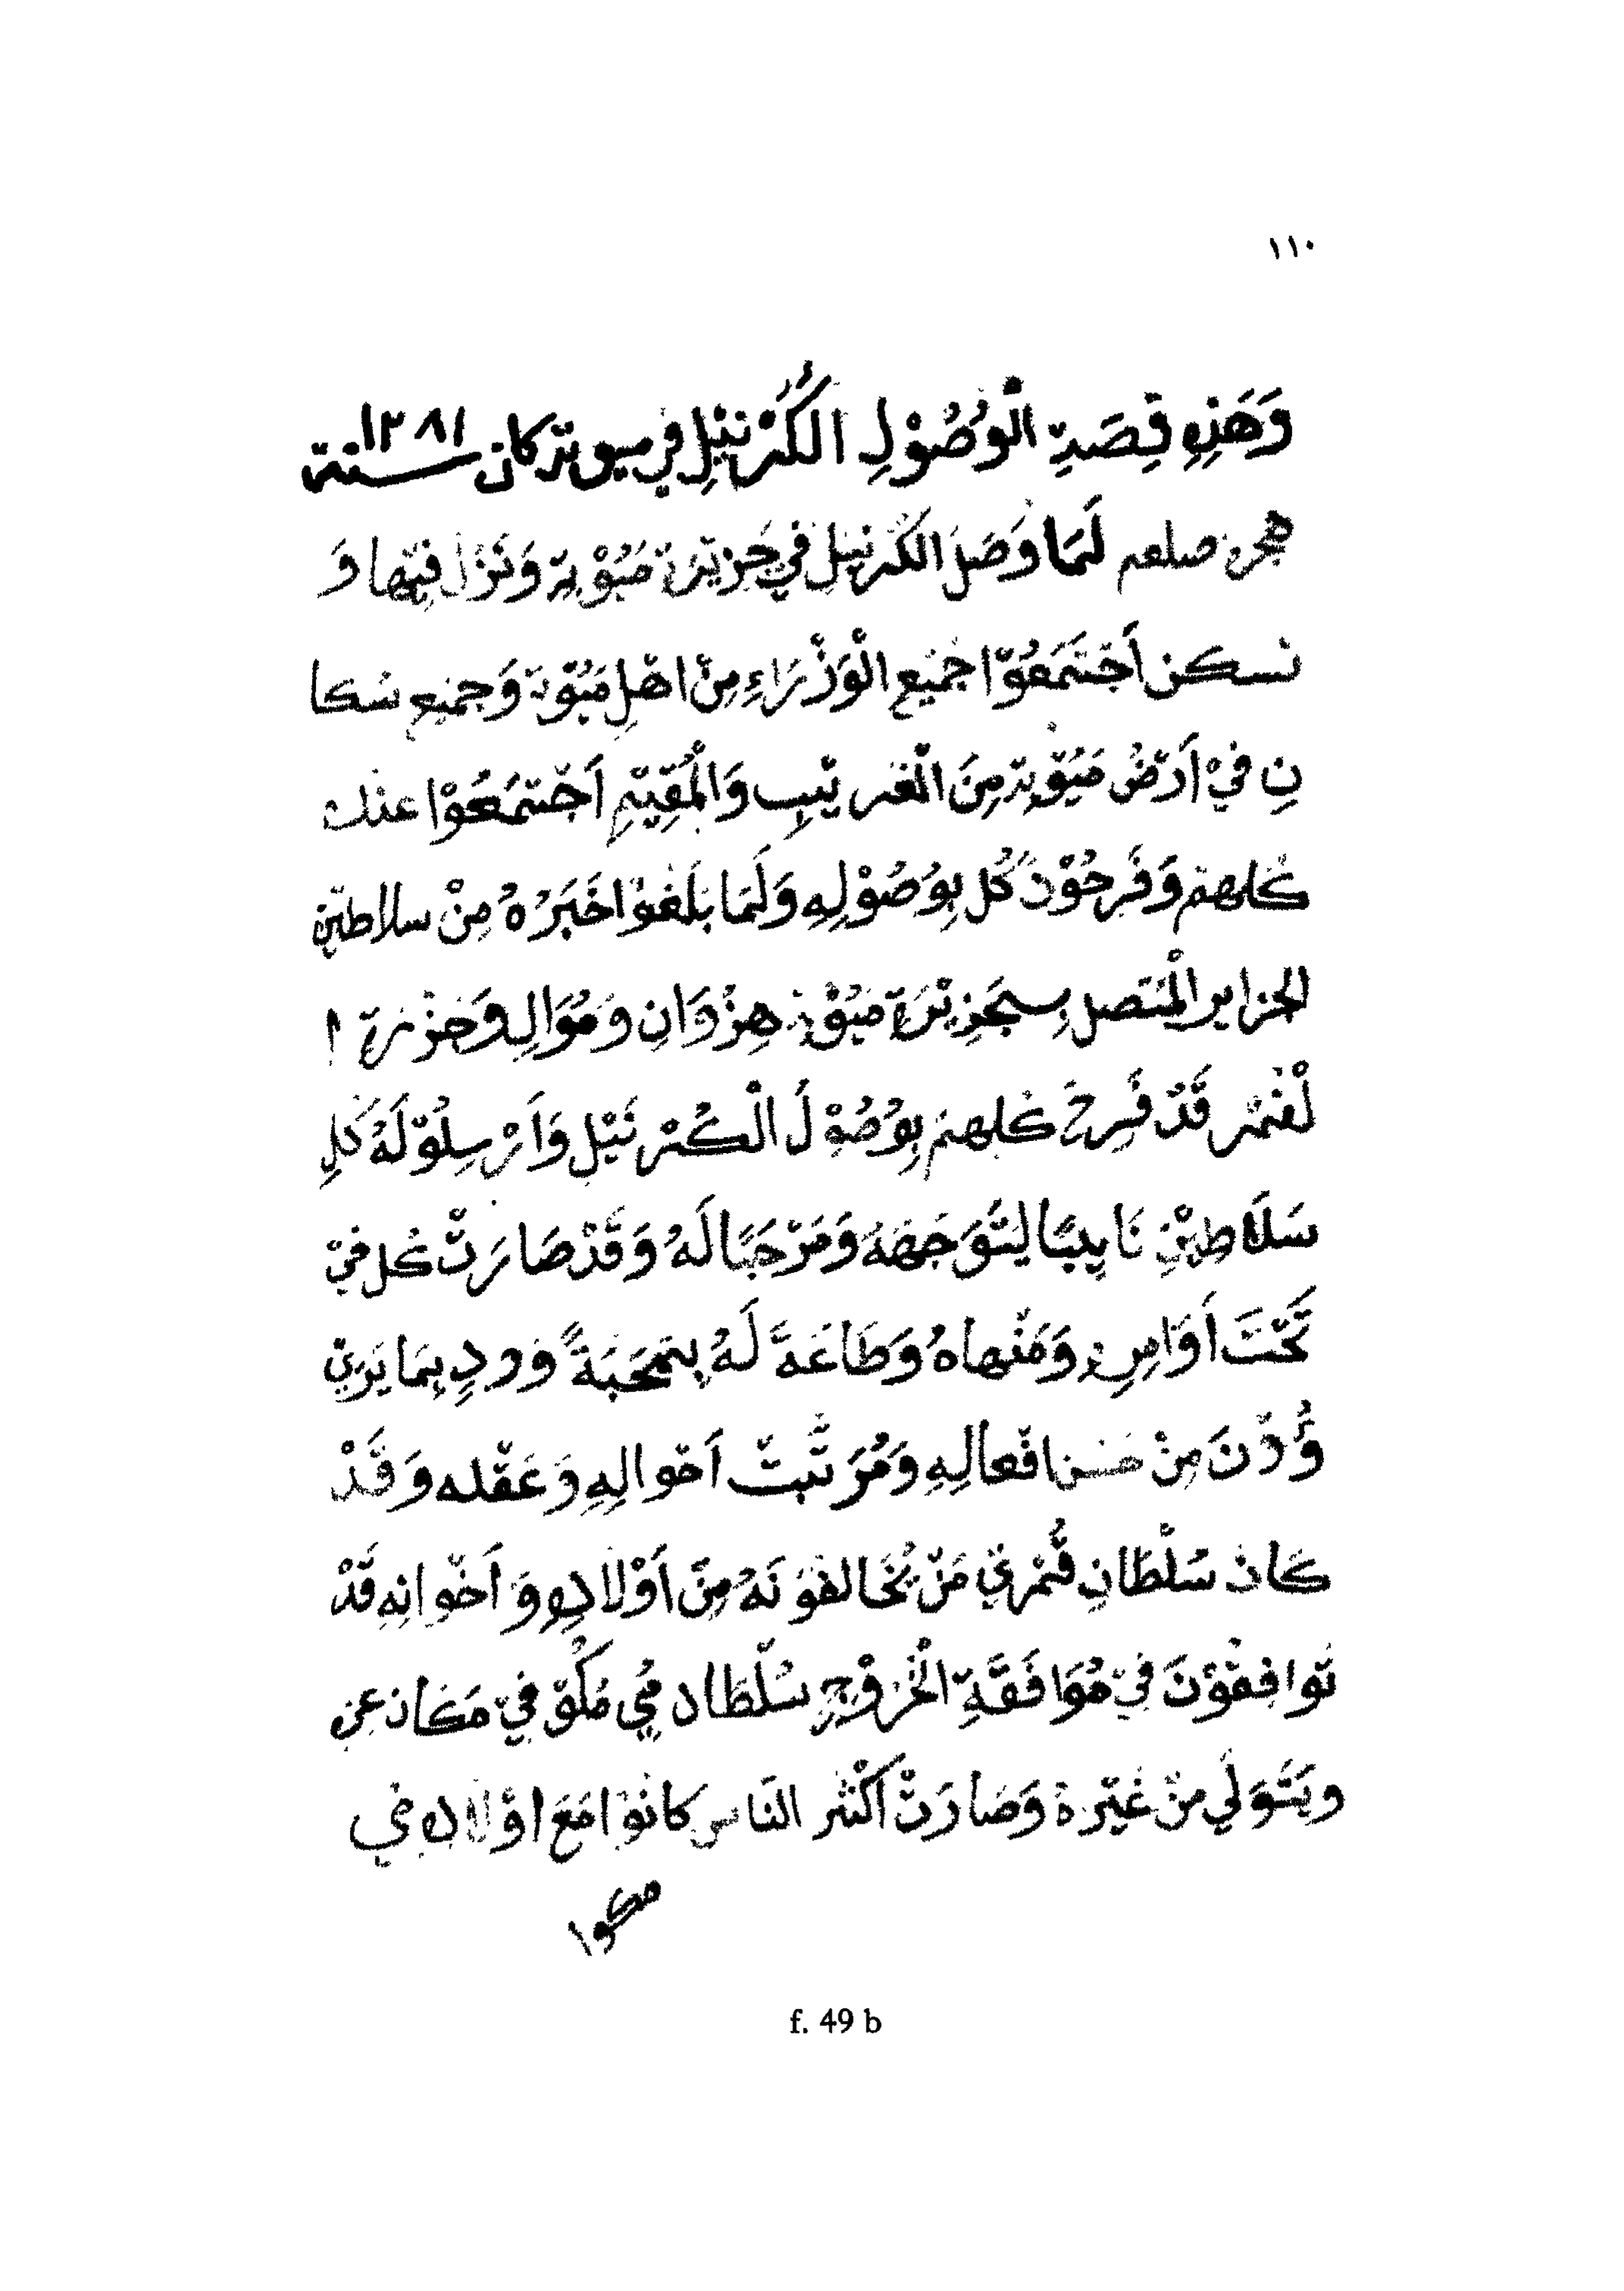 ١١٠
وَهَذِهِ قِصَةِ الْوُصُوْلِ الكُرْنَيْلِ في ميوتة كان سنة ١٢٨١
هجرة صلعم لَمَا وَصَلَ الكُرنيل في جَزيرَة مَيُوْتة وَنَزَلَ فِيْها وَ
نسكن اَجْتَمَعُوْا جَمْيع الْوَزْرَاءِ مِنْ اهْلِ مَيُوْتة وَجميع سُكا
نِ فِيْ اَرْضُ مَيُوْتة مِنَ الْغَريْبِ وَالْمُقِيْمِ اَجْتمَعُوْا عنده
كُلهمْ وَفَرحُوْنَ كُل بِوُصُوْلِهِ وَلَمَا بَلَغوْا خَبَرُهُ مِنْ سلاطين
الجزاير الْمتصل بِجَزِيْرَة مَيُوْتة هِزُوَانِ وَمُوَالِ وَجَزْرَة ا
لْغَمْر قَدْ فَرِحَ كُلهمْ بِوُصُوْلَ الْكُرْنَيْلِ وَاَرْسِلُوْ لَهُ كُلِ
سَلَاطِيْنِ نَايِبًا لِتَوَجَهَهُ وَمَرْحَبًا لَهُ وَقَدْ صَارَتْ كُل فيْ
تَحْتَ اَوَامِرِهِ وَمَنْهاهُ وَطَاعَةً لَهُ بِمَحَبَةً وَودِ بِمَا يَرين
وُدْنَ مِنْ حَسَن افْعالِهِ وَمُرَتَّبتْ اَحْوالِهِ وَعَقْله وَقَدْ
كَانَ سُلْطَانِ قُمْرِيْ مَنْ يُخَالفوْنَهُ مِنْ اَوْلَادِهِ وَاَخْوانِهِ قَدْ
تَوافِقُوْنَ فيْ مُوَافَقَةِ الْخُرُوْجِ سُلْطَان مي مَكُوْ فيْ مَكَان عزه
ويَتَوَلي مِنْ غَيْرهْ وَصَارَتْ اَكْثَر النَاس كَانوْا مَعَ اوْلاده مي
مكوا
f. 49 b